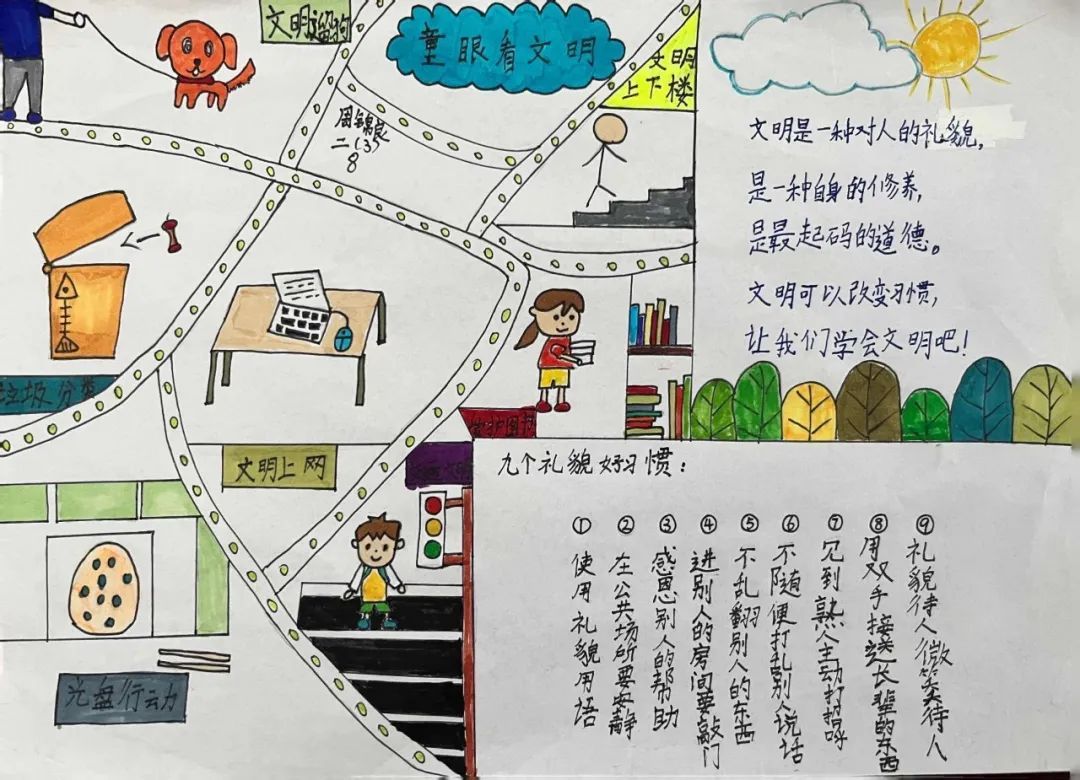 文明遛狗
童眼看文明
文明
上下楼
周锦良
二(3)
8
文明是一种对人的礼貌，
是一种自身的修养，
是最起码的道德。
文明可以改变习惯，
让我们学会文明吧！
垃圾分类
文明上网
光盘行动
九个礼貌好习惯：
①使用礼貌用语
②在公共场所要安静
③感恩别人的帮助
④进别人的房间要敲门
⑤不乱翻别人的东西
⑥不随便打乱别人说话
⑦见到熟人主动打招呼
⑧用双手接送长辈的东西
⑨礼貌待人微笑待人